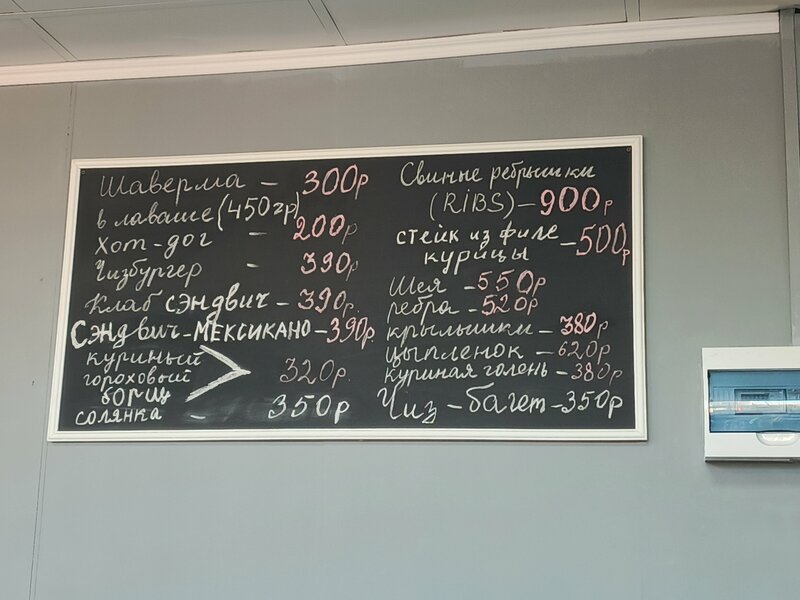 Шаверма - 300р
в лаваше (450гр)
Хот-дог - 200р
Чизбургер - 390р
Клаб сэндвич - 390р.
Сэндвич-Мексикано-390р.
куриный
гороховый 320р.
борщ
солянка - 350р
Свиные ребрышки
(RIBS)-900р
стейк из филе -500р
курицы
Шея -550р
ребра -520р
крылышки - 380р
цыпленок - 620р
куриная голень -380р
Чиз-багет-350р